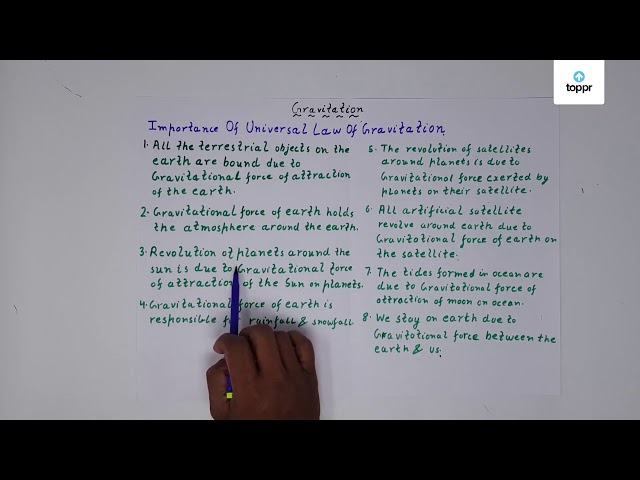 toppr
Gravitation
Importance Of Universal Law Of Gravitation.
1. All the terrestrial objects on the
earth are bound due to
Gravitational force of attraction
of the earth.
2. Gravitational force of earth holds
the atmosphere around the earth.
3. Revolution of planets around the
sun is due to Gravitational force
of attraction of the Sun on planets.
4. Gravitational force of earth is
responsible for rainfall & snowfall
5. The revolution of satellites
around planets is due to
Gravitational force exerted by
planets on their satellite.
6. All artificial satellite
revolve around earth due to
Gravitational force of earth on
the satellite.
7. The tides formed in ocean are
due to Gravitational force of
attraction of moon on ocean.
8. We stay on earth due to
Gravitational force between the
earth & us.